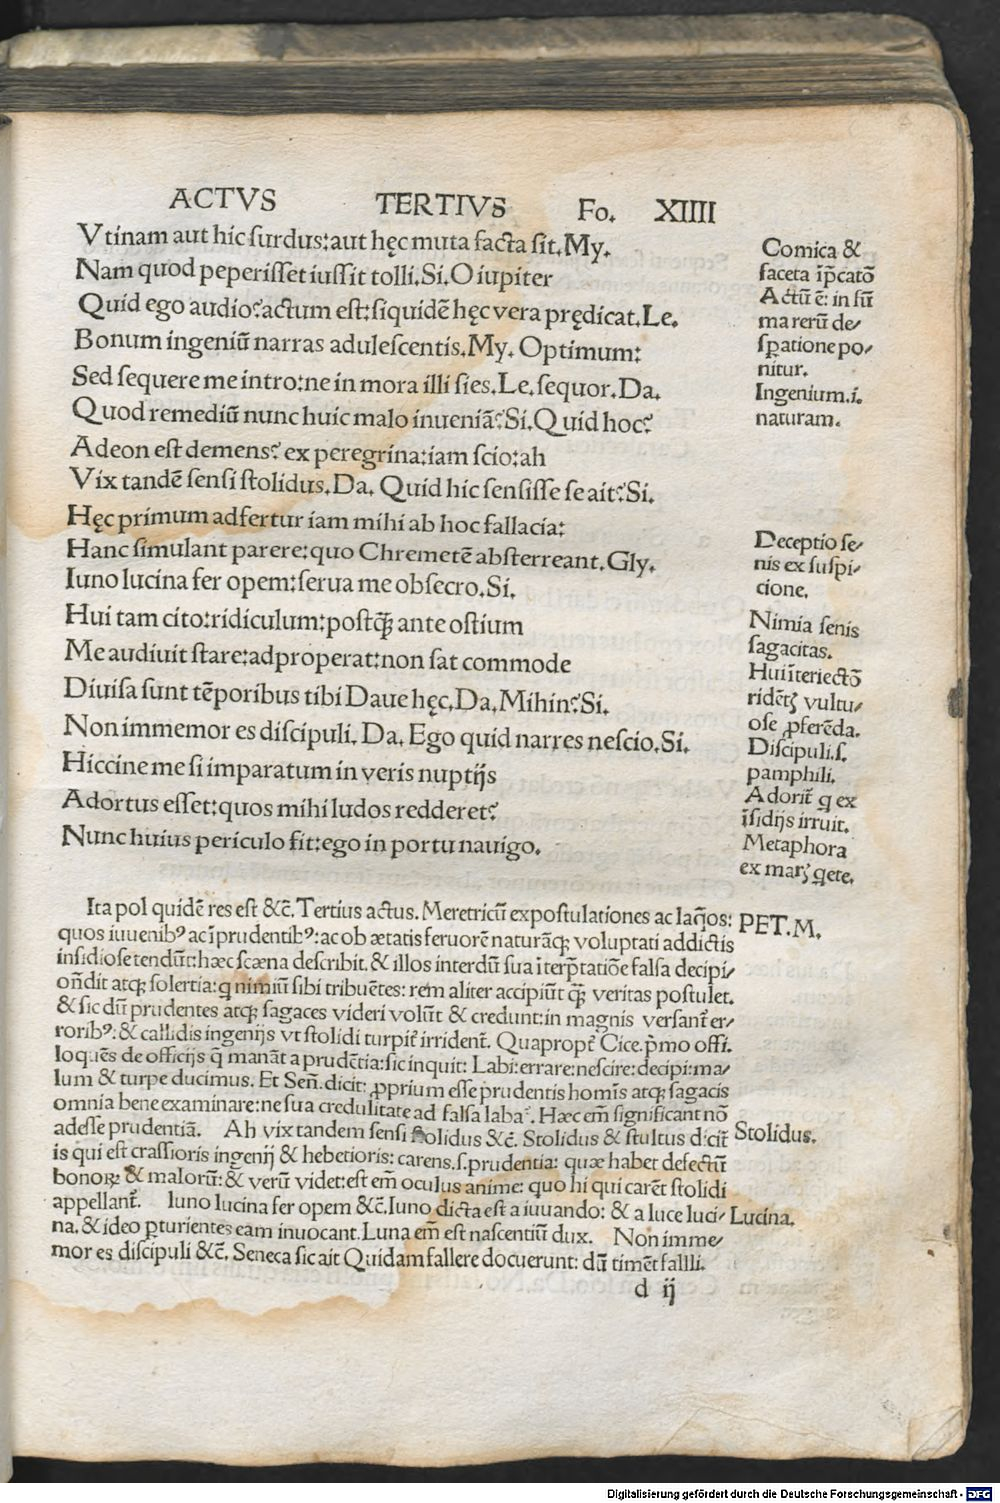 ACTVS TERTIVS Fo. XIIII
Vtinam aut hic surdus:aut hęc muta facta sit.My.
Nam quod peperisset iussit tolli.Si.O iupiter
Quid ego audio?actum est:siquidē hęc vera prędicat.Le.
Bonum ingeniū narras adulescentis.My. Optimum:
Sed sequere me intro:ne in mora illi sies.Le.sequor.Da.
Quod remediū nunc huic malo inueniā?Si.Quid hoc?
Adeon est demens? ex peregrina:iam scio:ah
Vix tandē sensi stolidus.Da. Quid hic sensisse se ait?Si.
Hęc primum adfertur iam mihi ab hoc fallacia:
Hanc simulant parere:quo Chremetē absterreant.Gly.
Iuno lucina fer opem:serua me obsecro.Si.
Hui tam cito:ridiculum:postq̄ ante ostium
Me audiuit stare:adproperat:non sat commode
Diuisa sunt tēporibus tibi Daue hęc.Da.Mihin?Si.
Non immemor es discipuli. Da. Ego quid narres nescio.Si.
Hiccine me si imparatum in veris nuptijs
Adortus esset:quos mihi ludos redderet?
Nunc huius periculo fit:ego in portu nauigo.
Comica &
faceta īp̄catō
Actū ē: in sū
ma rerū de/
sꝑatione po/
nitur.
Ingenium.i.
naturam.
Deceptio se/
nis ex suspi/
cione.
Nimia senis
sagacitas.
Hui īteriectō
ridētꝭ vultu/
ose ꝓferēda.
Discipuli.s.
pamphili.
Adorit̄ q ex
īsidijs irruit.
Metaphora
ex marꝭ qete.
Ita pol quidē res est &c̄. Tertius actus. Meretricū expostulationes ac laq̄os:
quos iuuenibꝰ ac īprudentibꝰ:ac ob ætatis feruorē naturāqꝫ voluptati addictis
insidiose tendūt:hæc scæna describit.& illos interdū sua īterp̄tatiōe falsa decipi/
ōndit atqꝫ solertia:q nimiū sibi tribuētes: rem aliter accipiūt q̄ veritas postulet.
& sic dū prudentes atqꝫ sagaces videri volūt & credunt:in magnis versant̄ er/
roribꝰ:& callidis ingenijs vt stolidi turpit̄ irrident̄. Quapropt̄ Cice.p̄mo offi.
loquēs de officijs q̄ manāt a prudētia:sic inquit: Labi:errare:nescire:decipi:ma/
lum & turpe ducimus. Et Señ.dicit: ꝓprium esse prudentis homīs atqꝫ sagacis
omnia bene examinare:ne sua credulitate ad falsa laba. Hæc em̄ significant nō
adesse prudentiā. Ah vix tandem sensi stolidus &c̄. Stolidus & stultus dicit̄
is qui est crassioris ingenij & hebetioris: carens.s.prudentia: quæ habet defectū
bonoꝝ & malorū:& verū videt:est em̄ oculus anime: quo hi qui carēt stolidi
appellant̄. Iuno lucina fer opem &c̄.Iuno dicta est a iuuando: & a luce luci/
na.& ideo ꝑturientes eam inuocant.Luna em̄ est nascentiū dux. Non imme/
mor es discipuli &c̄. Seneca sic ait Quidam fallere docuerunt: dū timēt fallli.
PET.M.
Stolidus.
Lucina.
d ij
Digitalisierung gefördert durch die Deutsche Forschungsgemeinschaft - DFG